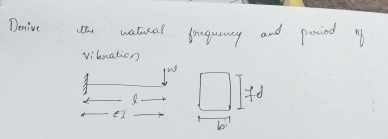 Derive the natural frequency and period of
vibration
w
l
EI
d
b